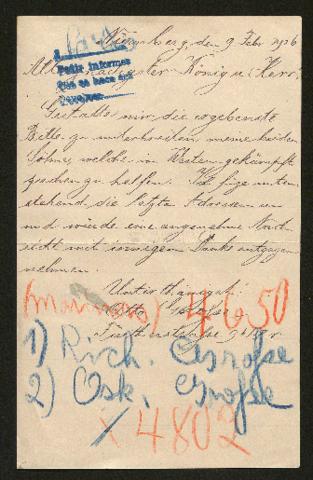 Nürnberg, den 9 Febr 1916
Allergnädigster König u. Herr!
Gestatte mir die ergebenste
Bitte zu unterbreiten meine beiden
Söhne, welche im Westen gekämpft
suchen zu helfen. Ich füge unten
stehend die letzte Adressen an
und würde eine angenehme Nach
richt mit innigem Danke entgegen
nehmen.
Unterthänigst
Pedir informes
4650
1) Rich. Grosse
2) Osk. Grosse
x 4802